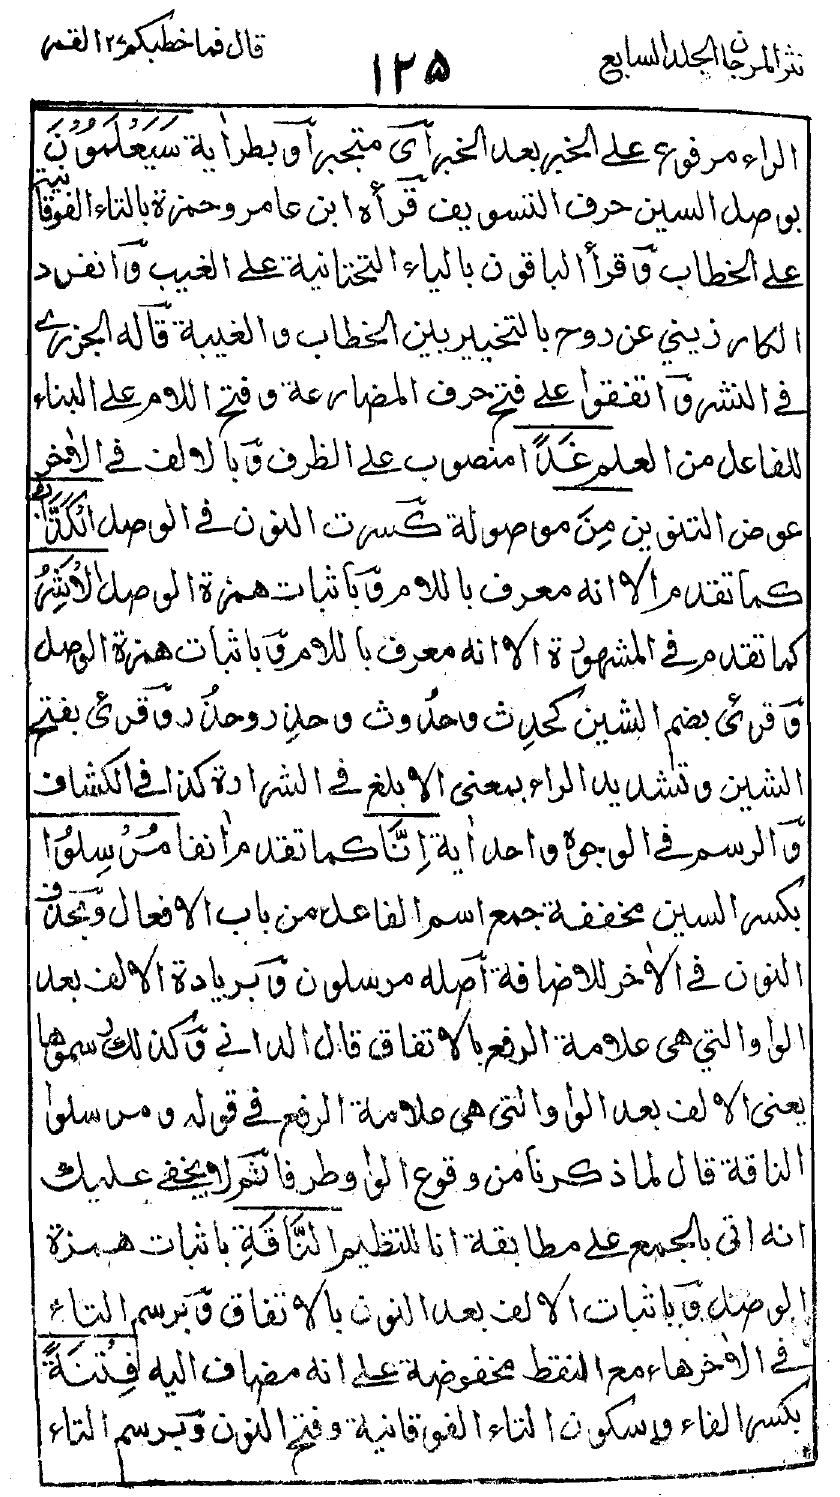 نثر المرجان الجلد السابع
١٢٥
قال فما خطبكم ٢٧ القمر
الراء مرفوع على الخبر بعد الخبر اَىْ متجبر اَو بطر اٰية سَيَعْلَمُوْنَ
بوصل السين حرف التسويف قرأه ابن عامر وحمزة بالتاء الفوقانية
على الخطاب وَقرأ الباقون بالياء التحتانية على الغيب وَانفرد
الكارزيني عن روح بالتخيير بين الخطاب والغيبة قاله الجزرى
فى النشر وَاتفقوا على فتح حرف المضارعة وفتح اللام على البناء
للفاعل من العلم غَدًا منصوب على الظرف وَبالالف فى الاٰخر
عوض التنوين مِنَ موصولة كسرت النون فى الوصل الْكَذَّابُ
كما تقدم الا انه معرف باللام وَباثبات همزة الوصل الْاَشِرُ
كما تقدم فى المشهورة الا انه معرف باللام وَباثبات همزة الوصل
وَقرئ بضم الشين كحدِث وحدُوث وحذِر وحذُر وَقرئ بفتح
الشين وتشديد الراء بمعنى الابلغ فى الشرارة كذا فى الكشاف
وَالرسم فى الوجوه واحد اٰية اِنَّا كما تقدم اٰنفا مُرْسِلُوا
بكسر السين مخففة جمع اسم الفاعل من باب الافعال وَبحذف
النون فى الاٰخر للاضافة اَصله مرسلون وَبزيادة الالف بعد
الواو التي هى علامة الرفع بالاتفاق قال الدانى وَكذلك رسموها
يعنى الالف بعد الواو التى هى علامة الرفع فى قوله ومرسلوا
الناقة قال لما ذكرنا من وقوع الواو طرفا ثم لا يخفى عليك
انه اتى بالجمع على مطابقة انا للتعظيم النَّاقَةِ باثبات همزة
الوصل وَباثبات الالف بعد النون بالاتفاق وَبرسم التاء
فى الاٰخر هاء مع النقط مخفوضة على انه مضاف اليه فِتْنَةً
بكسر الفاء وسكون التاء الفوقانية وفتح النون وَبرسم التاء